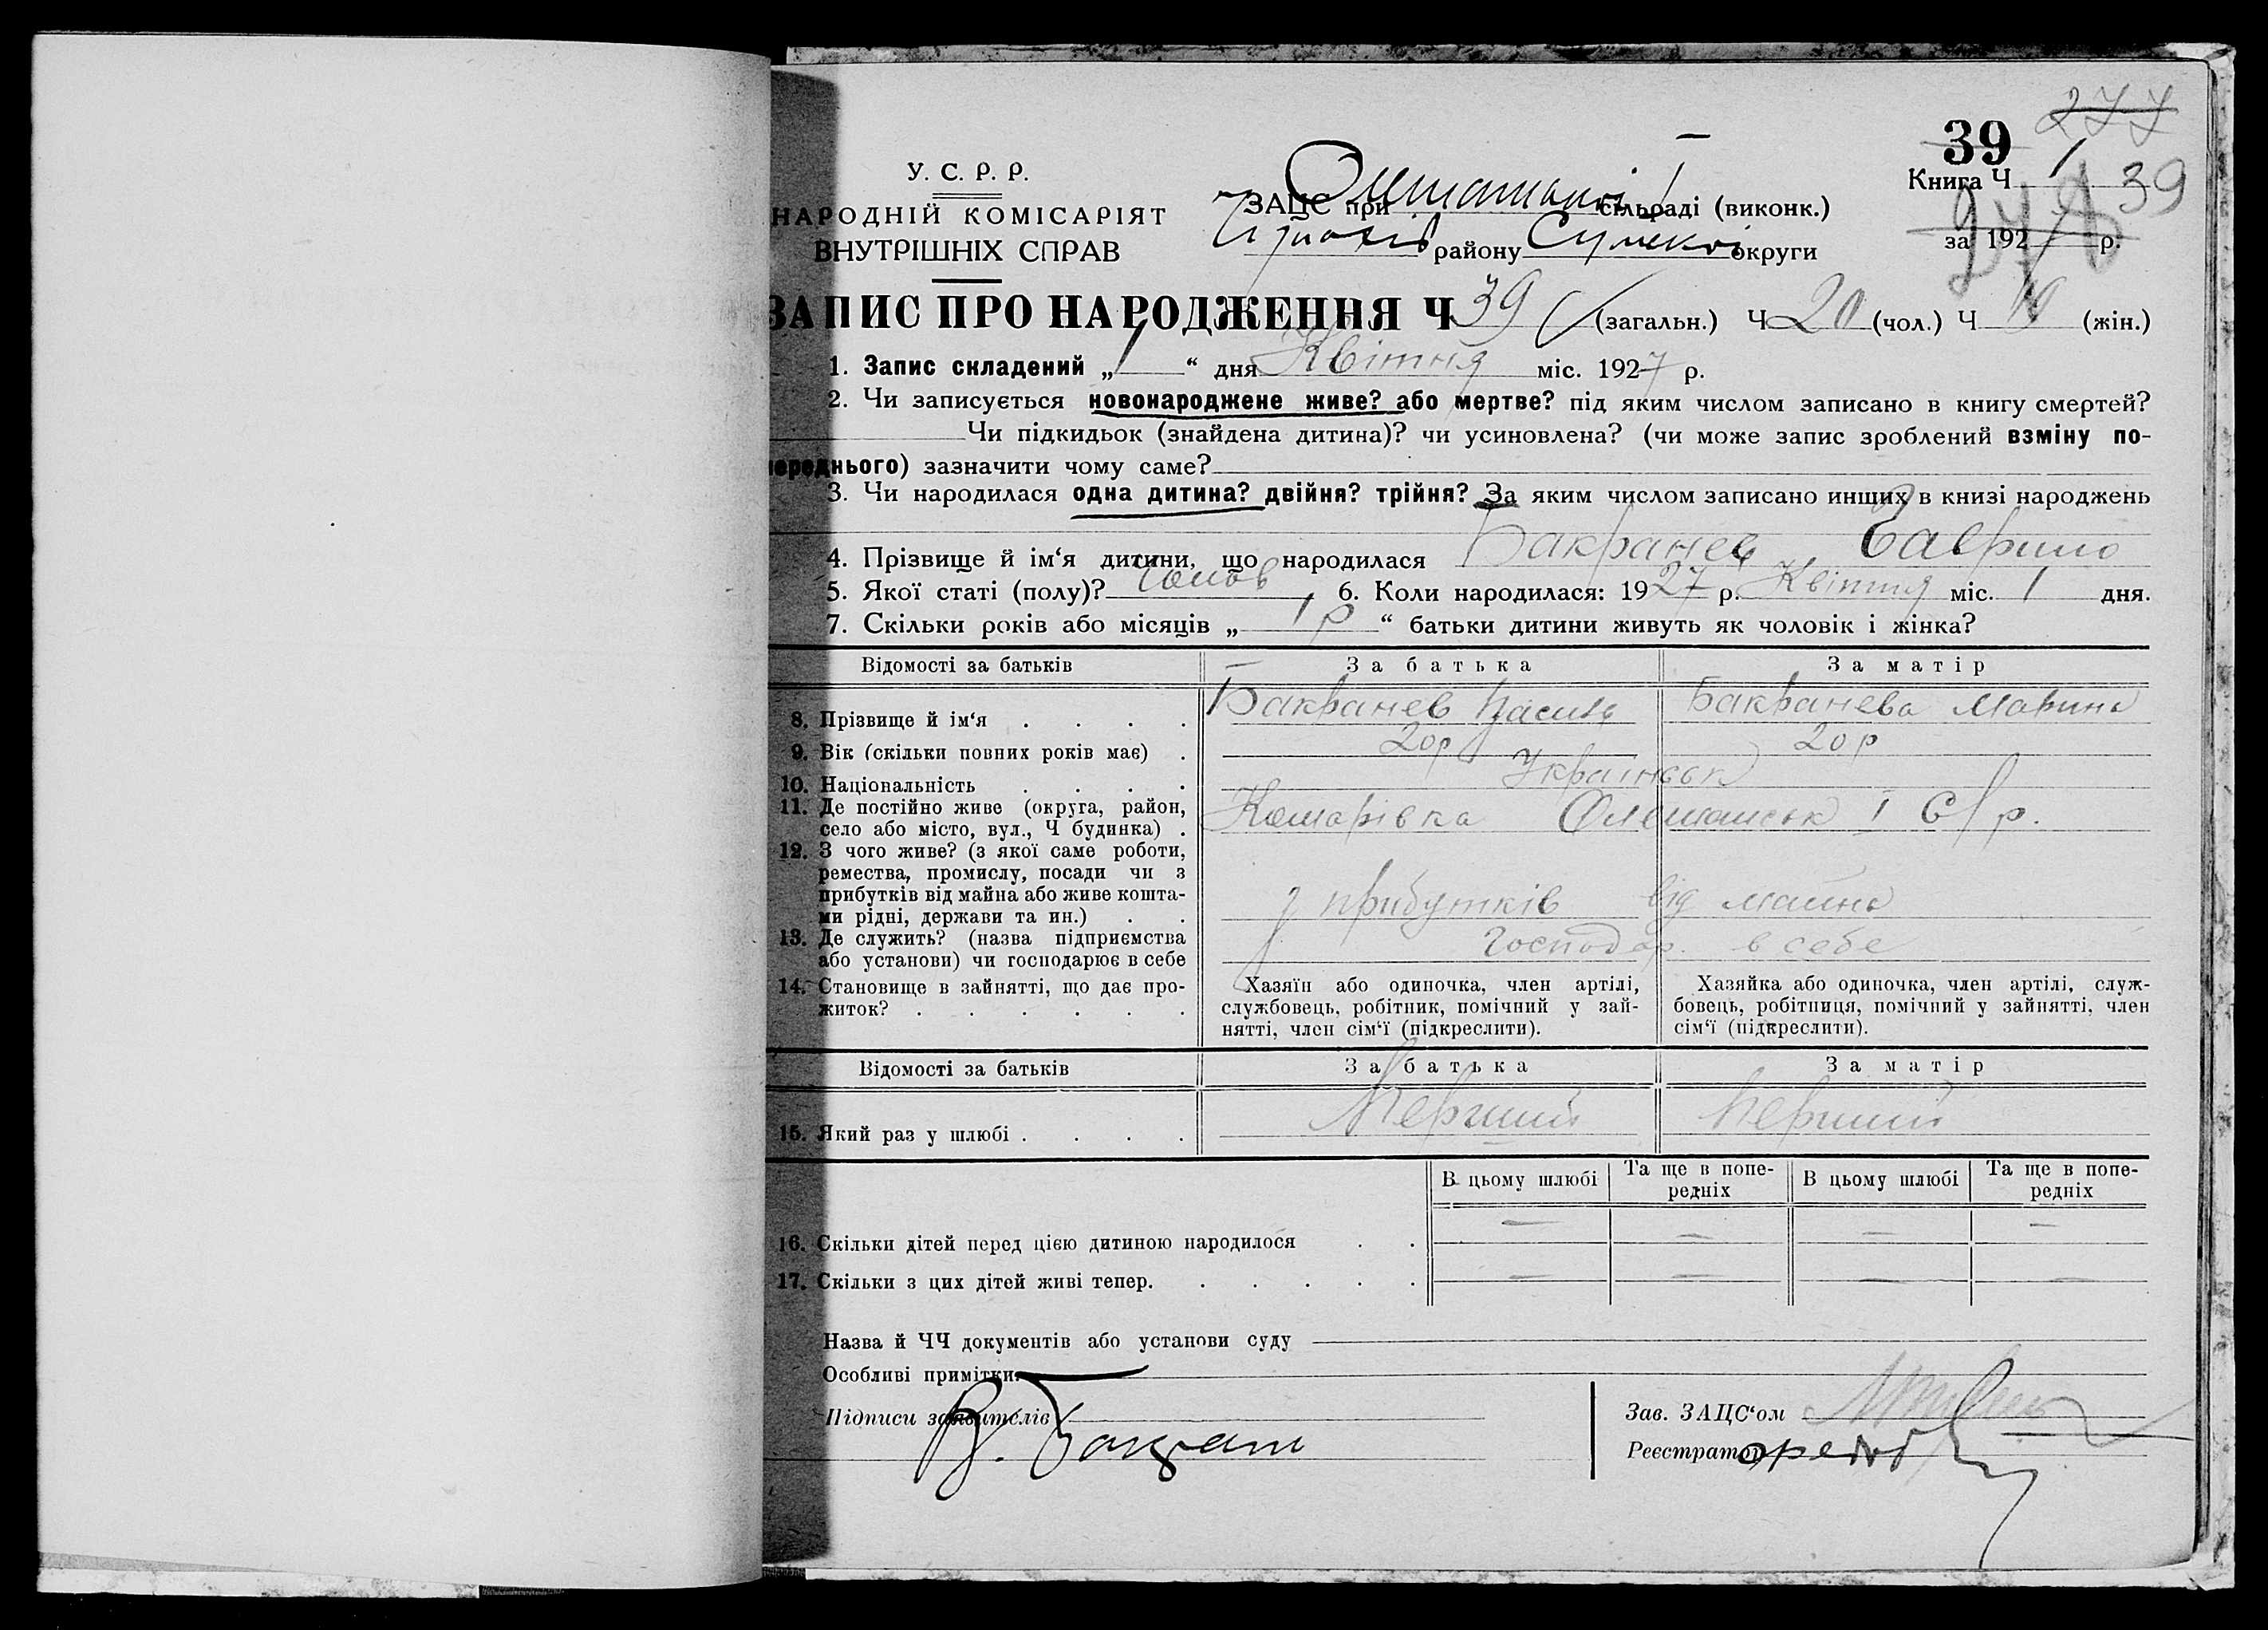 39 277
У. С. Р. Р.
Книга Ч 1 39
НАРОДНІЙ КОМІСАРІЯТ
ЗАЦС при сільраді (виконк.)
ВНУТРІШНІХ СПРАВ
району Сумської округи
за 1927 р. 278
ЗАПИС ПРО НАРОДЖЕННЯ Ч 39 (загальн.) Ч 20 (чол.) Ч (жін.)
1. Запис складений „ 1 “ дня Квітня міс. 1927 р.
2. Чи записується новонароджене живе? або мертве? під яким числом записано в книгу смертей?
Чи підкидьок (знайдена дитина)? чи усиновлена? (чи може запис зроблений взміну по-
переднього) зазначити чому саме?
3. Чи народилася одна дитина? двійня? трійня? За яким числом записано инших в книзі народжень
4. Прізвище й ім‘я дитини, що народилася Бакранев Гаврило
5. Якої статі (полу)? чолов 6. Коли народилася: 1927 р. Квітня міс. 1 дня.
7. Скільки років або місяців „ 1 р “ батьки дитини живуть як чоловік і жінка?
Відомості за батьків За батька За матір
8. Прізвище й ім‘я Бакранев Василь Бакранева Марина
9. Вік (скільки повних років має) 20р 20р
10. Національність Українськ
11. Де постійно живе (округа, район,
село або місто, вул., Ч будинка) Комарівка Олешанськ І С/р.
12. З чого живе? (з якої саме роботи,
ремества, промислу, посади чи з
прибутків від майна або живе кошта-
ми рідні, держави та ин.) з прибутків від майна
13. Де служить? (назва підприємства
або установи) чи господарює в себе Господар. в себе
14. Становище в зайнятті, що дає про-
житок?
Хазяїн або одиночка, член артілі,
службовець, робітник, помічний у зай-
нятті, член сім‘ї (підкреслити).
Хазяйка або одиночка, член артілі, служ-
бовець, робітниця, помічний у зайнятті, член
сім‘ї (підкреслити).
Відомості за батьків За батька За матір
15. Який раз у шлюбі Перший Перший
В цьому шлюбі Та ще в попе-
редніх В цьому шлюбі Та ще в попе-
редніх
16. Скільки дітей перед цією дитиною народилося — — — —
17. Скільки з цих дітей живі тепер. — — — —
Назва й ЧЧ документів або установи суду
Особливі примітки
Підписи заявителів
Зав. ЗАЦС‘ом
Реєстратор